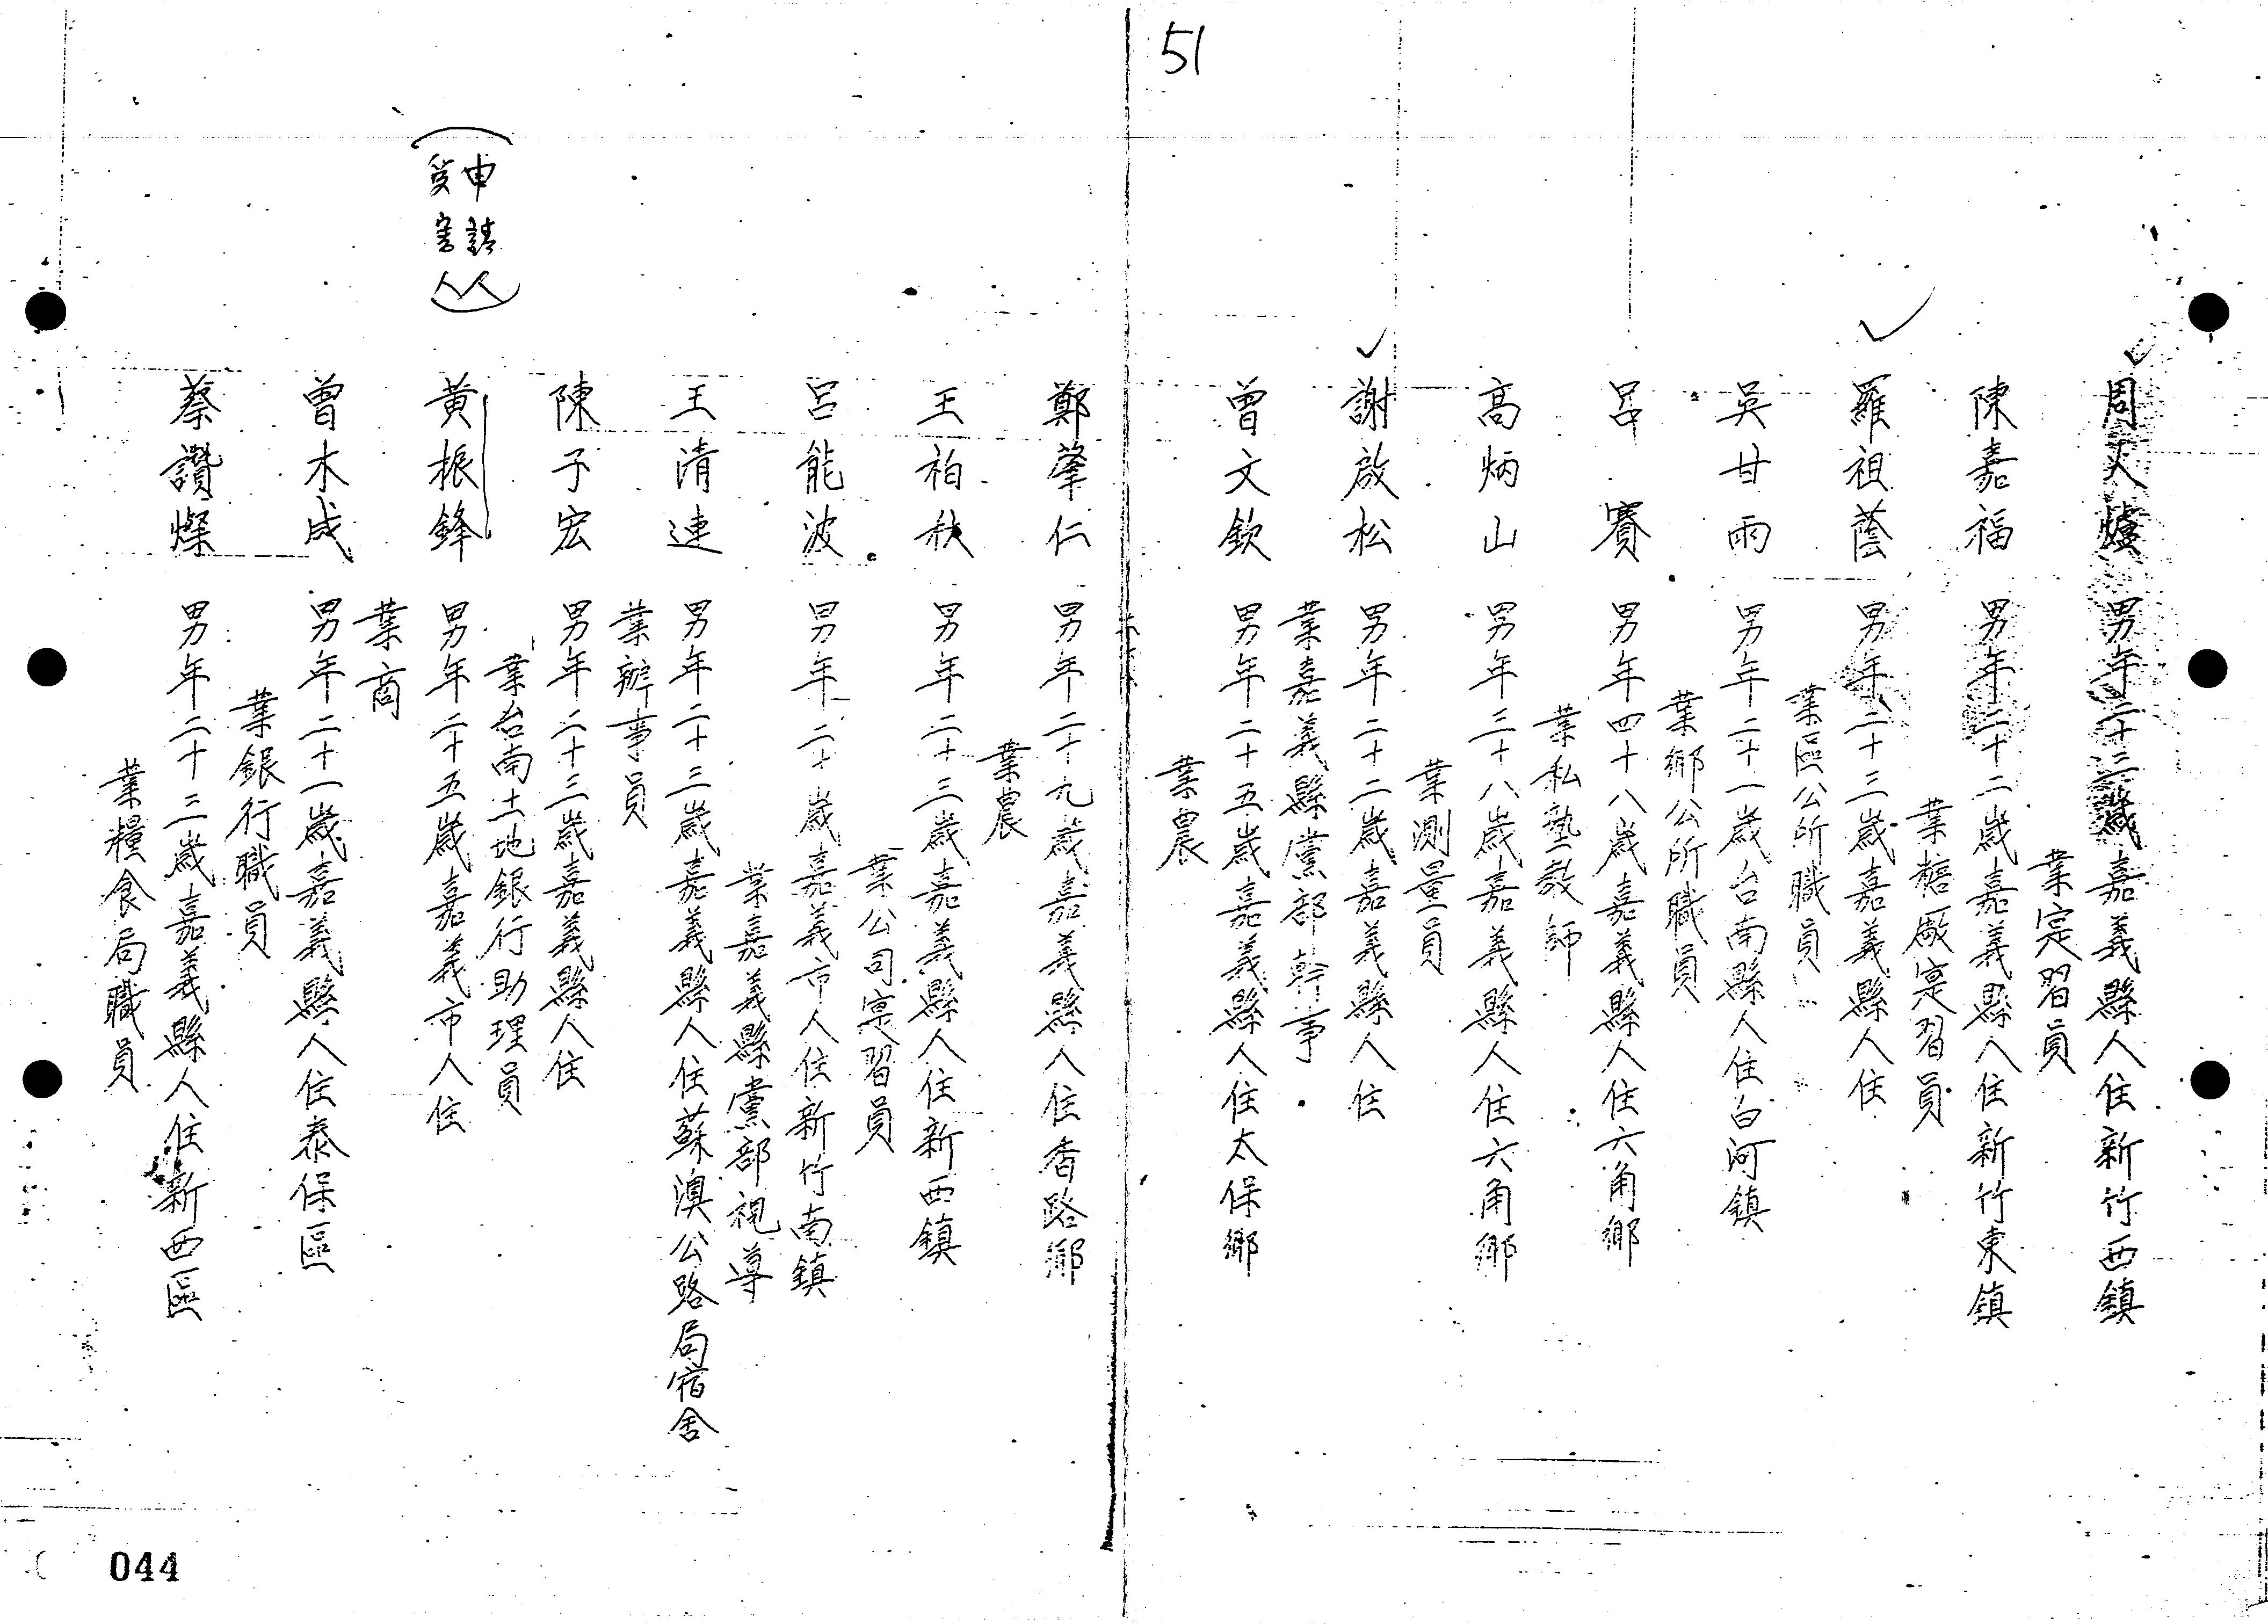 51
周人爐 男年二十三歲嘉義縣人住新竹西鎮
業寔習員
陳嘉福 男年二十二歲嘉義縣人住新竹東鎮
業糖廠寔習員
羅祖蔭 男年二十三歲嘉義縣人住
業區公所職員
吳甘雨 男年二十一歲台南縣人住白河鎮
業鄉公所職員
呂賽 男年四十八歲嘉義縣人住六角鄉
業私塾教師
高炳山 男年三十八歲嘉義縣人住六角鄉
業測量員
謝啟松 男年二十二歲嘉義縣人住
業嘉義縣黨部幹事
曾文欽 男年二十五歲嘉義縣人住太保鄉
業農
鄭肇仁 男年二十九歲嘉義縣人住香路鄉
業農
王柏秋 男年二十三歲嘉義縣人住新西鎮
業公司寔習員
呂能波 男年二十歲嘉義市人住新竹南鎮
業嘉義縣黨部視導
王清連 男年二十三歲嘉義縣人住蘇澳公路局宿舍
業辦事員
陳子宏 男年二十三歲嘉義縣人住
業台南土地銀行助理員
(申請人
受害人)
黃振鋒 男年二十五歲嘉義市人住
業商
曾木成 男年二十一歲嘉義縣人住泰保區
業銀行職員
蔡讚燦 男年二十三歲嘉義縣人住新西區
業糧食局職員
044